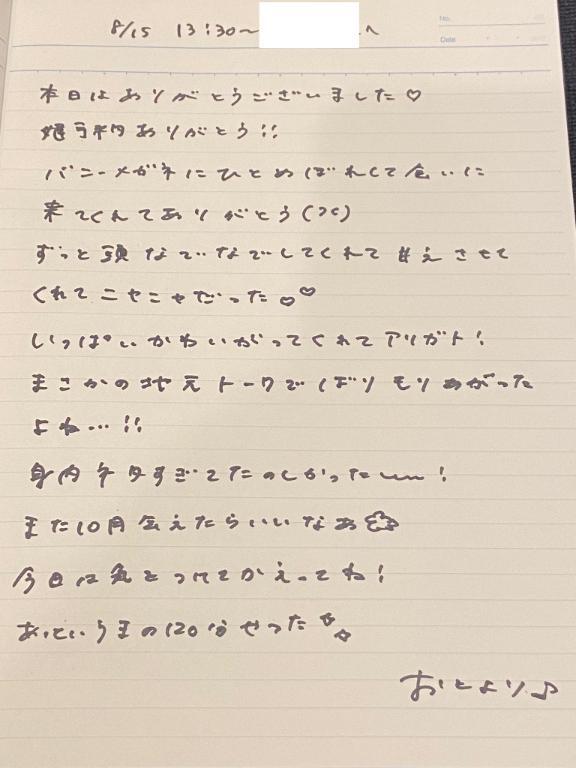 8/15 13:30〜 へ
No.
Date
本日はありがとうございました♡
ありがとう!!
バニーメガネにひとめぼれして会いに
来てくれてありがとう
ずっと頭なでなでしてくれて甘えさせて
くれてニヤニヤだった♡♡
いっぱいかわいがってくれてアリガト!
まさかの地元トークでばりモりあがった
よね…!!
身内ネタすぎてたのしかった〜!
また10月会えたらいいなあ
今日は気をつけてかえってね!
あっという間の120分やった
おとより♪